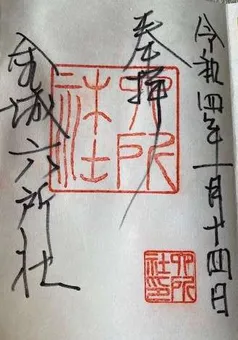 令和四年一月十四日
奉拝
金城六所社
六所
六所
社印